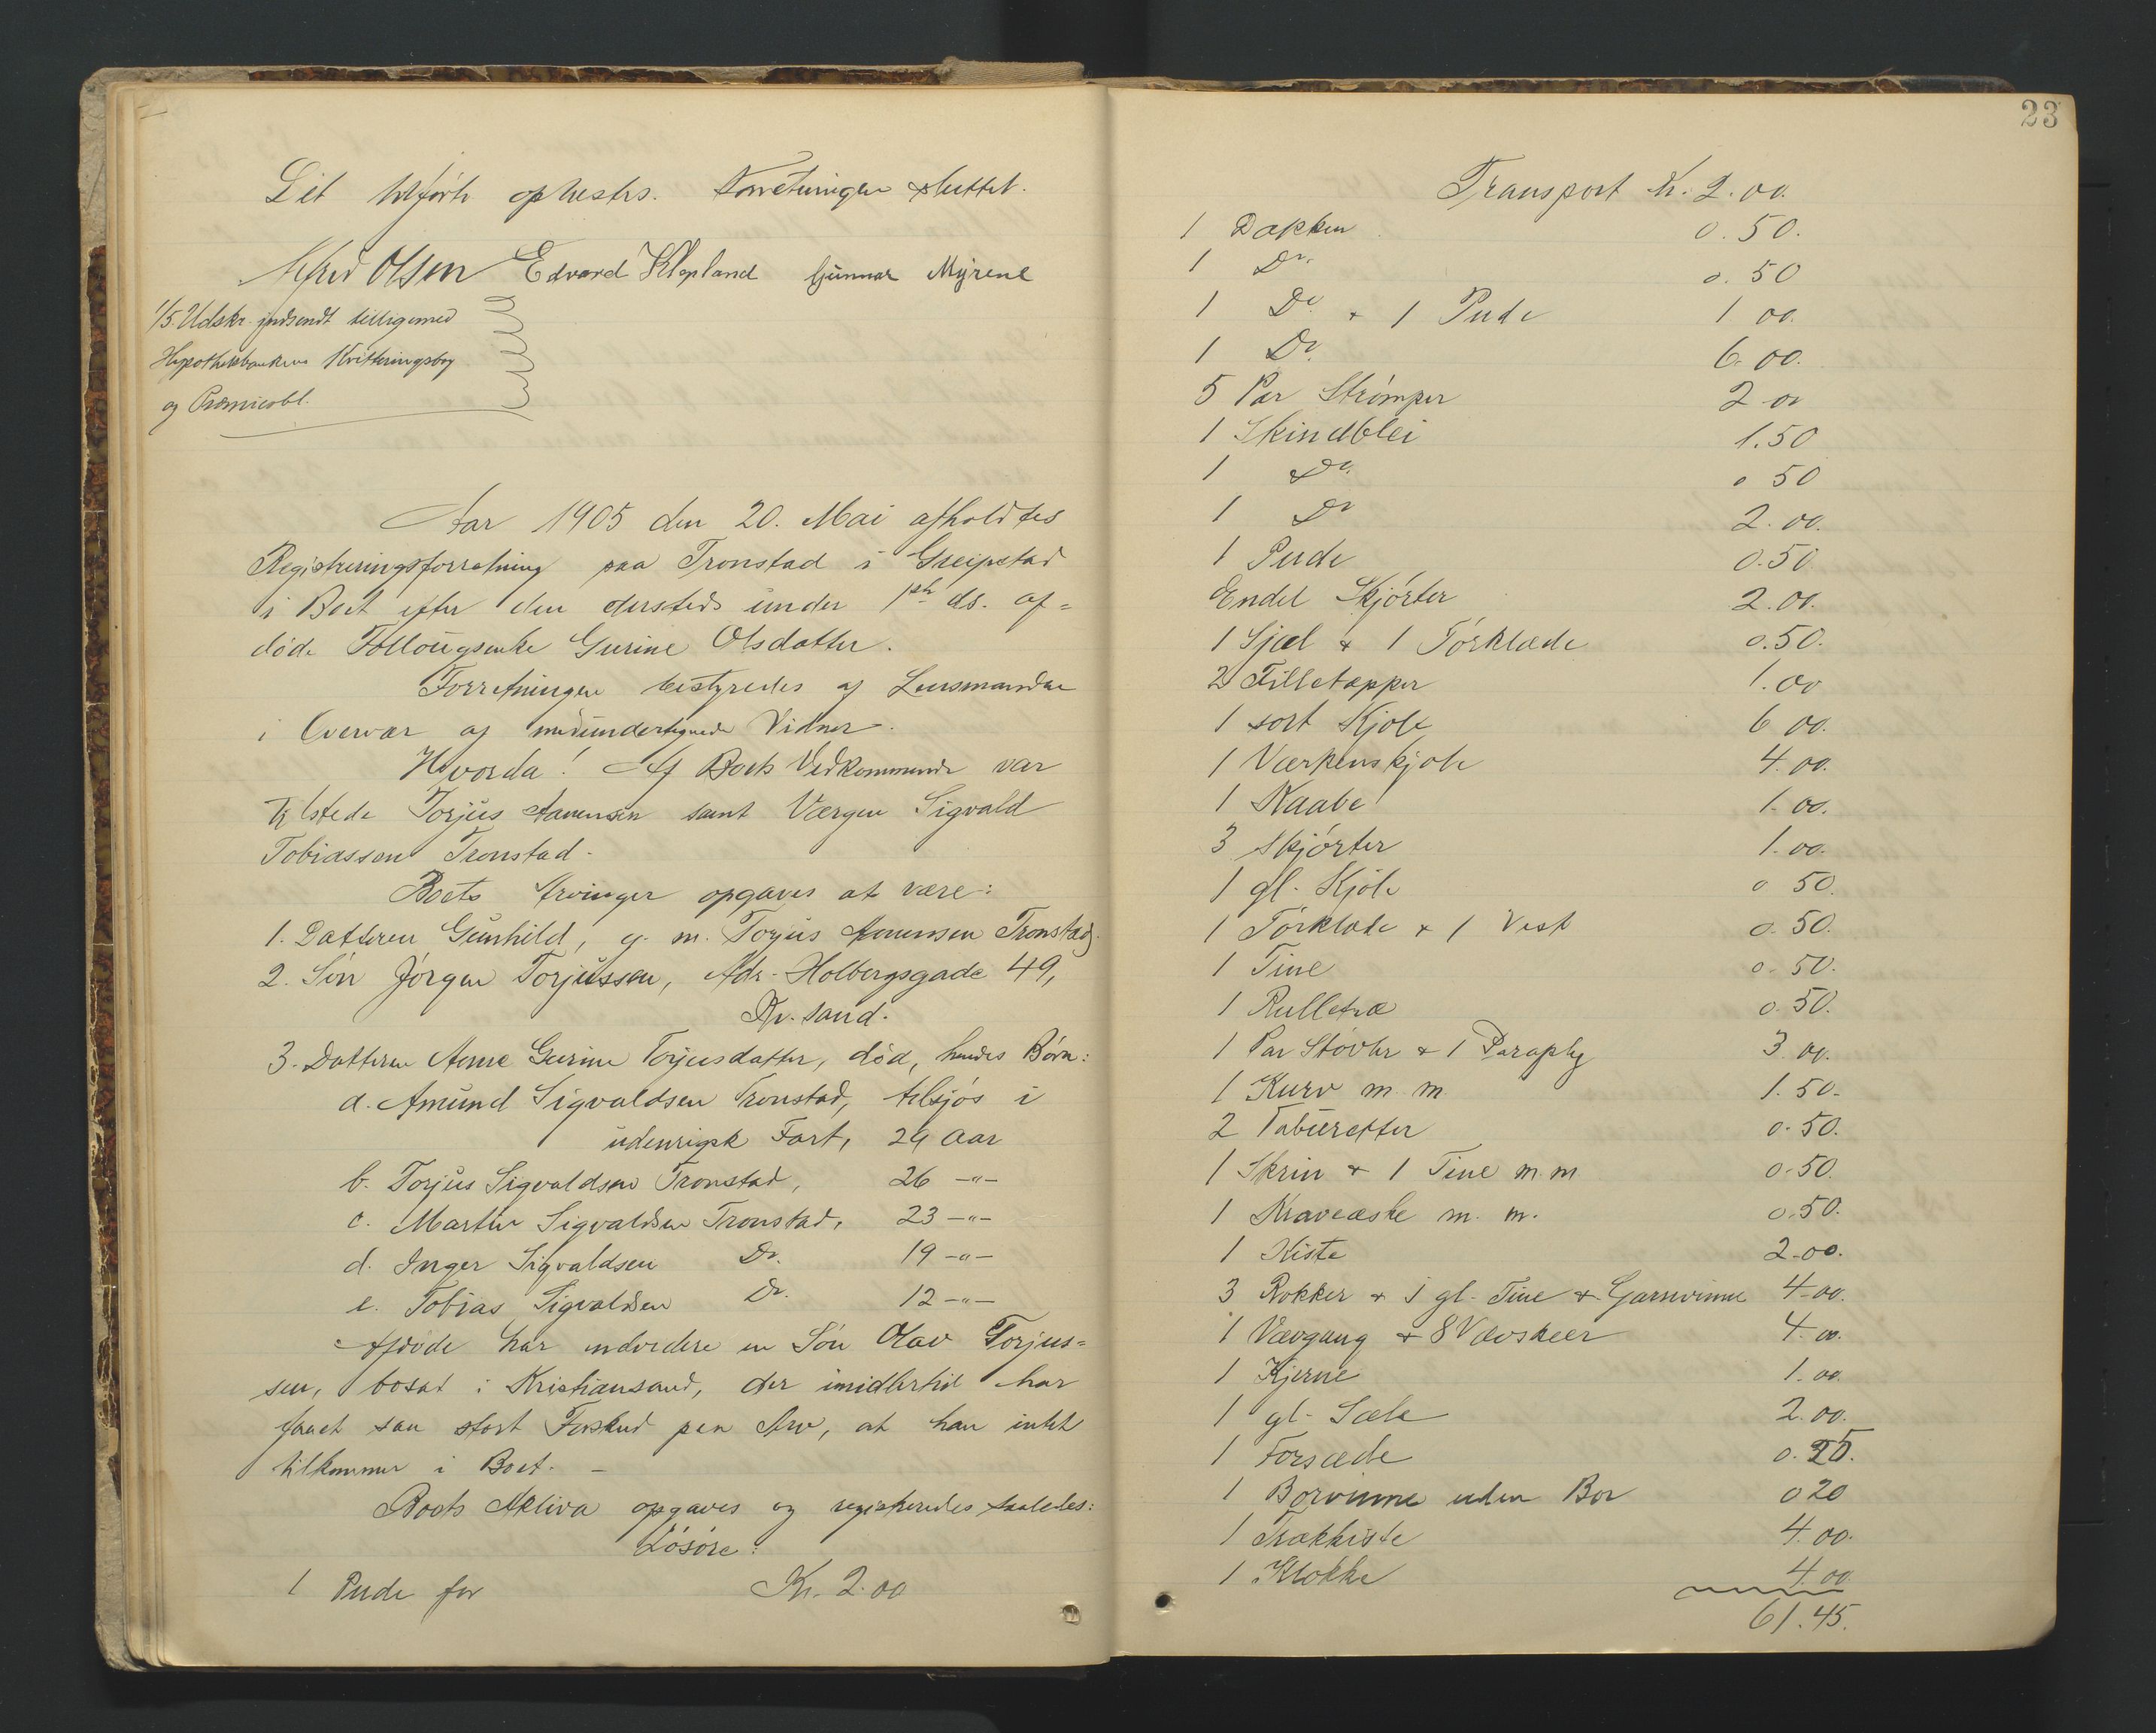 Det tilførte oplæstes. Forretningen sluttet.
Alfred Olsen Edvard Klepland Gunnar Myrene
1/5. Udskr. indsendt tilligemed
Hypothekbankens Kvitteringsbog
og Præmieobl.
Aar 1905 den 20. Mai afholdtes
Registreringsforretning paa Tronstad i Greipstad
i Boet efter den dersteds under 1ste ds. af=
døde Follougsenke Gurine Olsdatter.
Forretningen bestyredes af Lensmanden
i Overvær af medundertegnede Vidner.
Hvorda! Af Boets Vedkommende var
tilstede Torjus Aanensen samt Værgen Sigvald
Tobiassen Tronstad.
Boets Arvinger opgaves at være:
1. Datteren Gunhild, g. m. Torjus Aanensen Tronstad.
2. Søn Jørgen Torjussen, Adr. Holbergsgade 49,
Kr.sand.
3. Datteren Anne Gurine Torjusdatter, død, hendes Børn:
a. Amund Sigvaldsen Tronstad, tilsjøs i
udenrigsk Fart, 29 Aar
b. Torjus Sigvaldsen Tronstad, 26 -"-
c. Martin Sigvaldsen Tronstad, 23 -"-
d. Inger Sigvaldsen Do. 19 -"-
e. Tobias Sigvaldsen Do. 12 -"-
Afdøde har endvidere en Søn Olav Torjus=
sen, bosat i Kristiansand, der imidlertid har
faaet saa stort Forskud paa Arv, at han intet
tilkommer i Boet. -
Boets Aktiva opgaves og registreredes saaledes:
Løsøre:
1 Pude for Kr. 2.00
23
Transport Kr. 2.00.
1 Dækken 0.50.
1 Do. 0.50
1 Do. + 1 Pude 1 00.
1 Do. 6.00.
5 Par Strømper 2 00
1 Skindblei 1.50
1 Do. 0 50
1 Do 2.00.
1 Pude 0.50
Endel Skjørter 2.00.
1 Sjal + 1 Tørklæde 0.50.
2 Filletæpper 1.00
1 sort Kjole 6 00.
1 Værkenskjole 4.00.
1 Kaabe 1.00.
3 Skjørter 1.00.
1 gl. Kjole 0 50.
1 Tørklæde + 1 Vest 0.50.
1 Tine 0.50.
1 Rulletræ 0.50.
1 Par Støvler + 1 Paraply 3.00.
1 Kurv m. m. 1.50.
2 Taburetter 0.50.
1 Skrin + 1 Tine m.m 0.50.
1 Kraveæske m. m. 0.50.
1 Kiste 2.00.
3 Rokker + 1 gl. Tine + Garnvinne 4.00.
1 Vævgang + 8 Vævskeer 4.00.
1 Kjerne 1.00.
1 gl. Sæle 2.00.
1 Forsæde 0.25.
1 Borvinne uden Bor 0 20
1 Trækkiste 4.00.
1 Klokke 4.00
61.45.